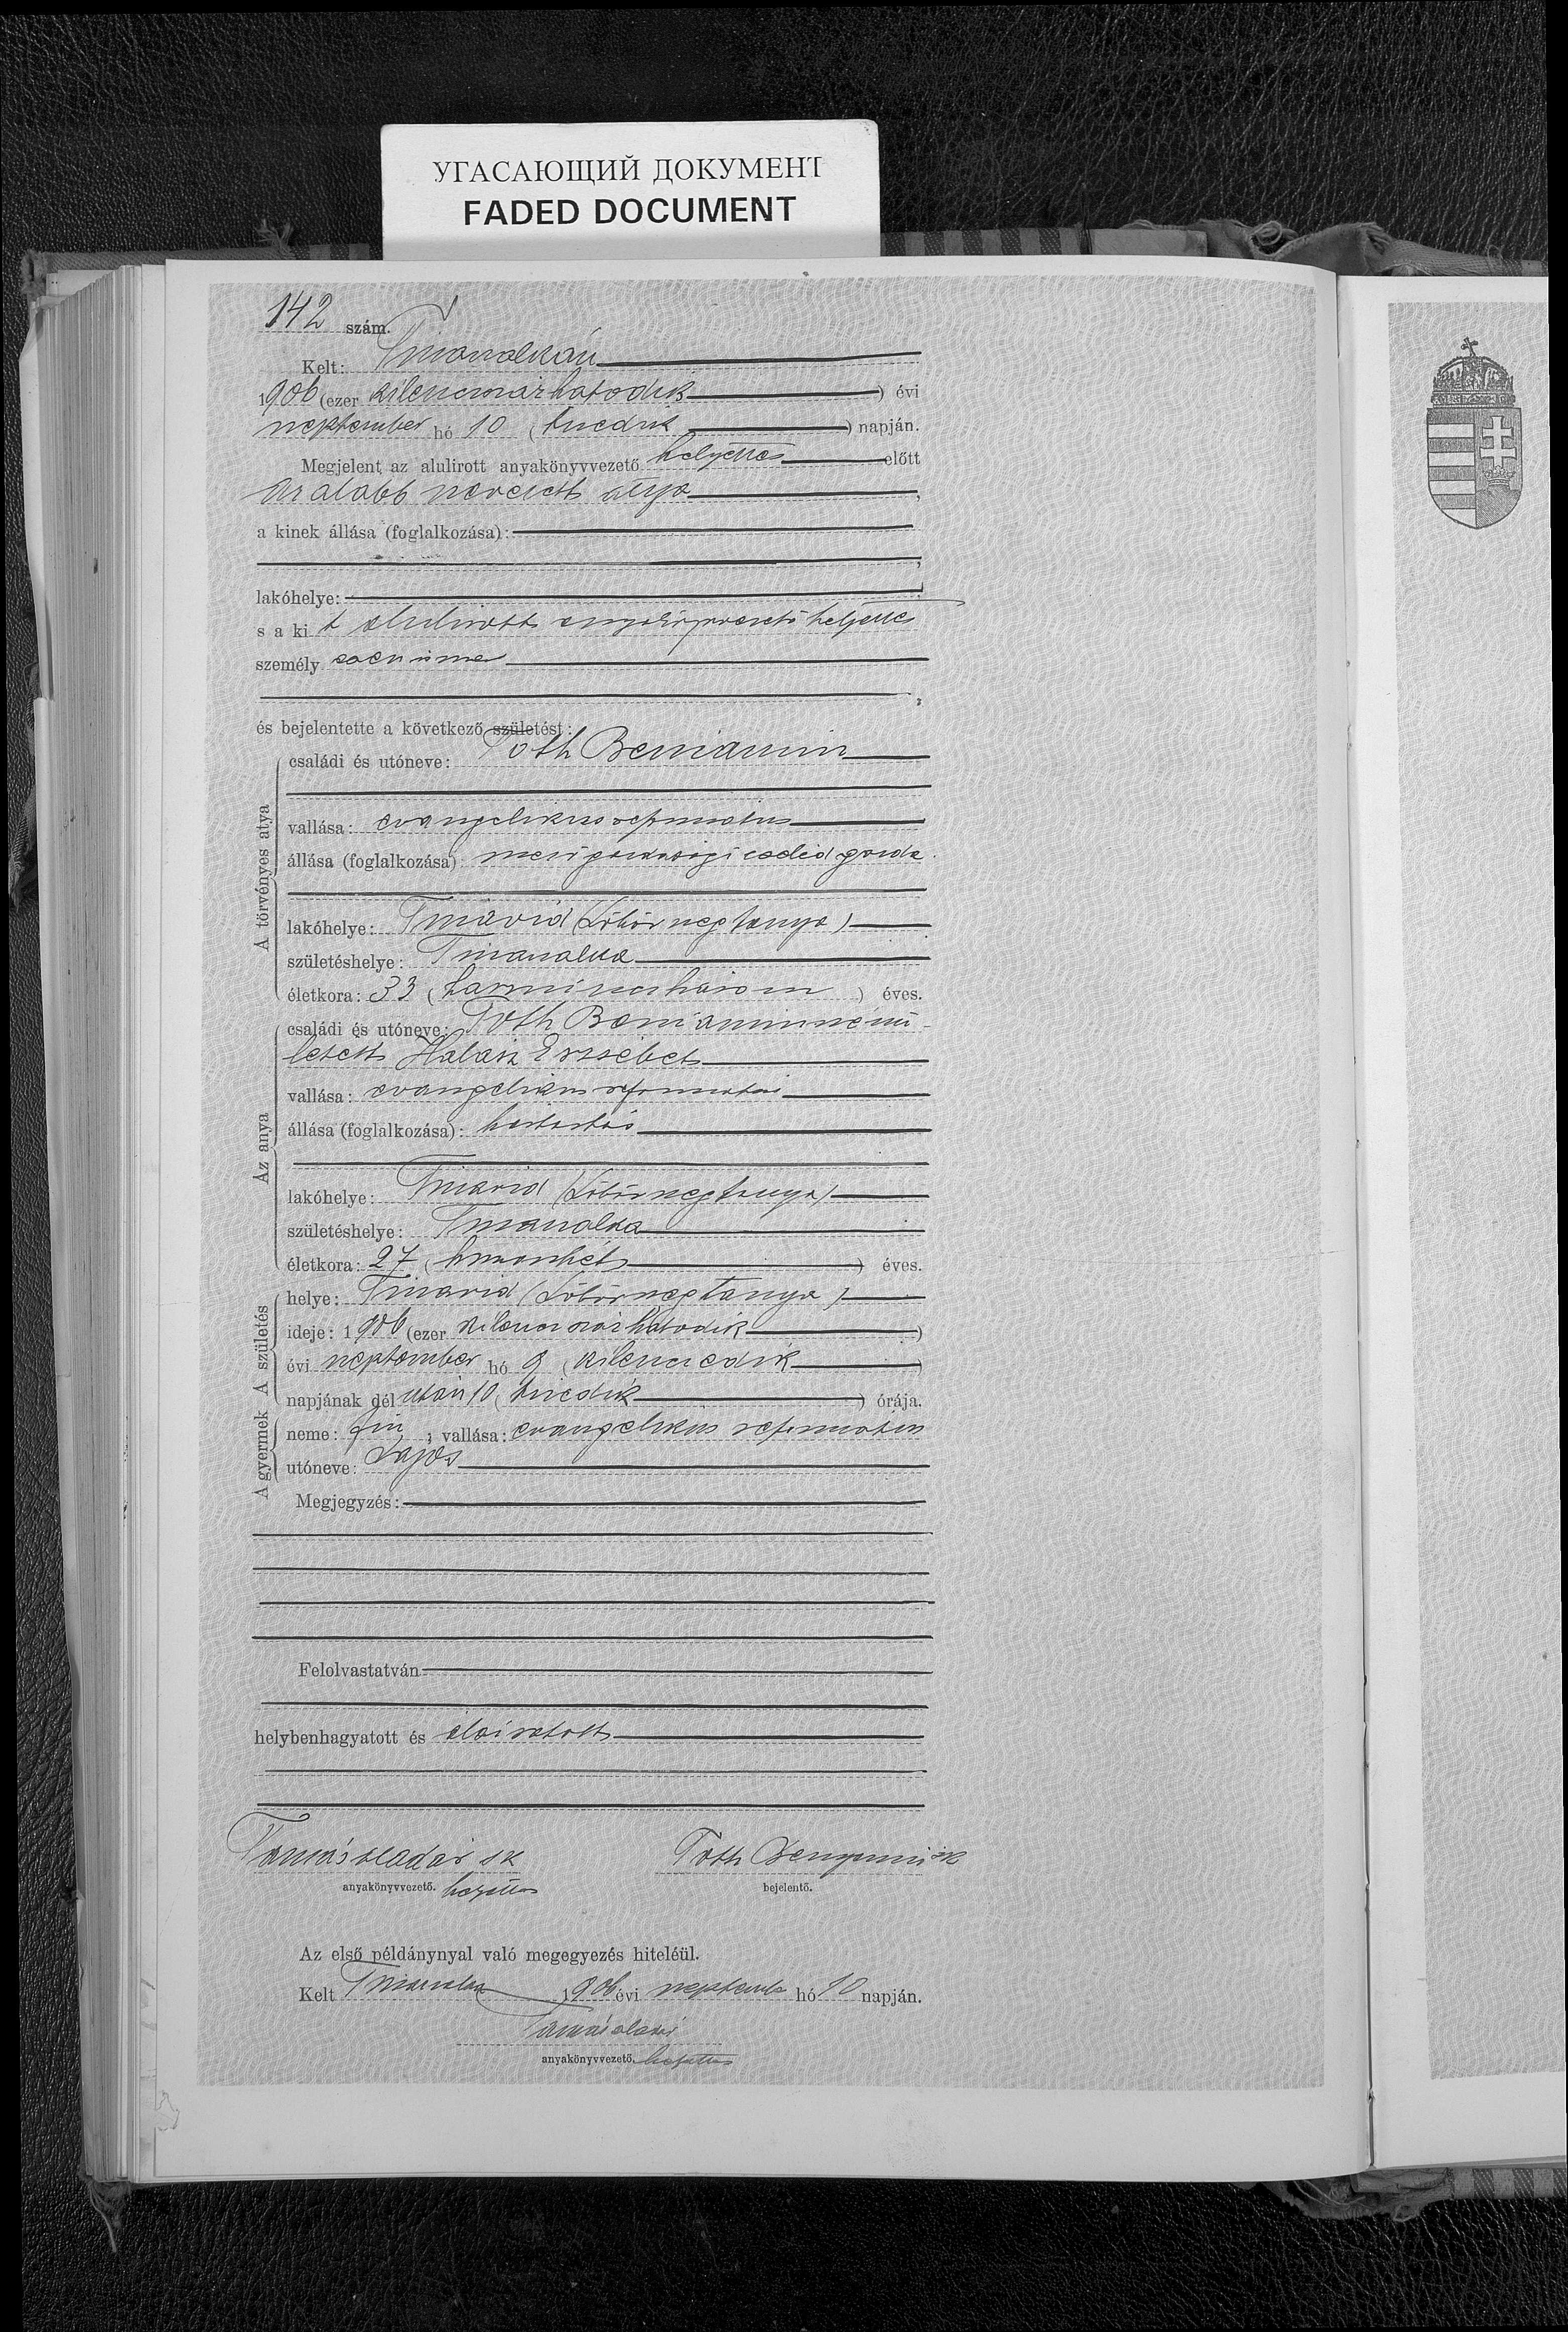 УГАСАЮЩИЙ ДОКУМЕНТ
FADED DOCUMENT
142 szám.
Kelt: Tiszavalkán
1906 (ezer kilencszázhatodik) évi
szeptember hó 10 (tizedik) napján.
Megjelent az alulirott anyakönyvvezető helyettes előtt
az alább nevezett atya,
a kinek állása (foglalkozása):
lakóhelye:
s a kit alulirott anyakönyvvezető helyettes
személyesen ismer
és bejelentette a következő születést:
A törvényes atya
családi és utóneve: Tóth Beniamin
vallása: evangelikus reformatus
állása (foglalkozása): mezőgazdasági cseléd
lakóhelye: Tiszavid
születéshelye: Tiszavalka
életkora: 33 (harminczhárom) éves.
Az anya
családi és utóneve: Tóth Beniaminné szü-
letett Halász Erzsébet
vallása: evangelikus reformatus
állása (foglalkozása): háztartás
lakóhelye: Tiszavid
születéshelye: Tiszavalka
életkora: 27 (huszonhét) éves.
A születés
helye: Tiszavid
ideje: 1906 (ezer kilencszázhatodik)
évi szeptember hó 9 (kilenczedik)
napjának dél után 10 (tizedik) órája.
A gyermek
neme: fiu; vallása: evangelikus reformatus
utóneve: Lajos
Megjegyzés:
Felolvastatván
helybenhagyatott és aláiratott
Tamás Aladár sk
Tóth Benyamin sk
anyakönyvvezető. helyettes
bejelentő.
Az első példánynyal való megegyezés hiteléül.
Kelt Tiszavalka 1906 évi szeptember hó 10 napján.
Tamás Aladár
anyakönyvvezető. helyettes